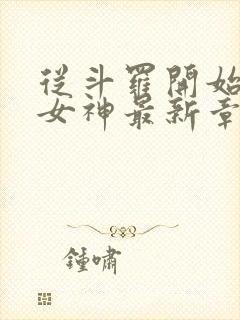 從斗羅開始
女神最新章
鍾嘯